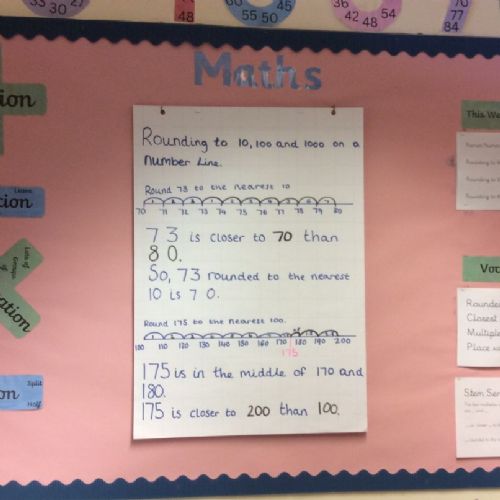 33 30 27
48
60 45
55 50
36
42 48 54
70
77
84
Maths
Rounding to 10, 100 and 1000 on a
Number Line.
Round 73 to the nearest 10
70 71 72 73 74 75 76 77 78 79 80
73 is closer to 70 than
80.
So, 73 rounded to the nearest
10 is 70.
Round 175 to the nearest 100.
100 110 120 130 140 150 160 170 180 190 200
175
175 is in the middle of 170 and
180.
175 is closer to 200 than 100.
Leave
Lots of
Groups of
Split
Half
This We
Rounding to the
Rounding to the
Rounding to the
Voc
Rounded
Closest
Multiple
Place va
Stem Sen